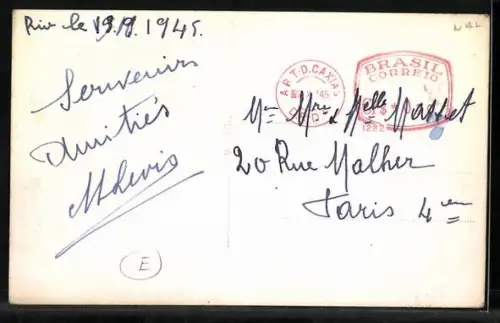 Rio le 19.11.1945.
Souvenirs
Amitiés
MLevis
A.P.T-D.CAXIAS
BRASIL
CORREIO
1282
Mr Mme & Melle Masset
20 Rue Malher
Paris 4em
E